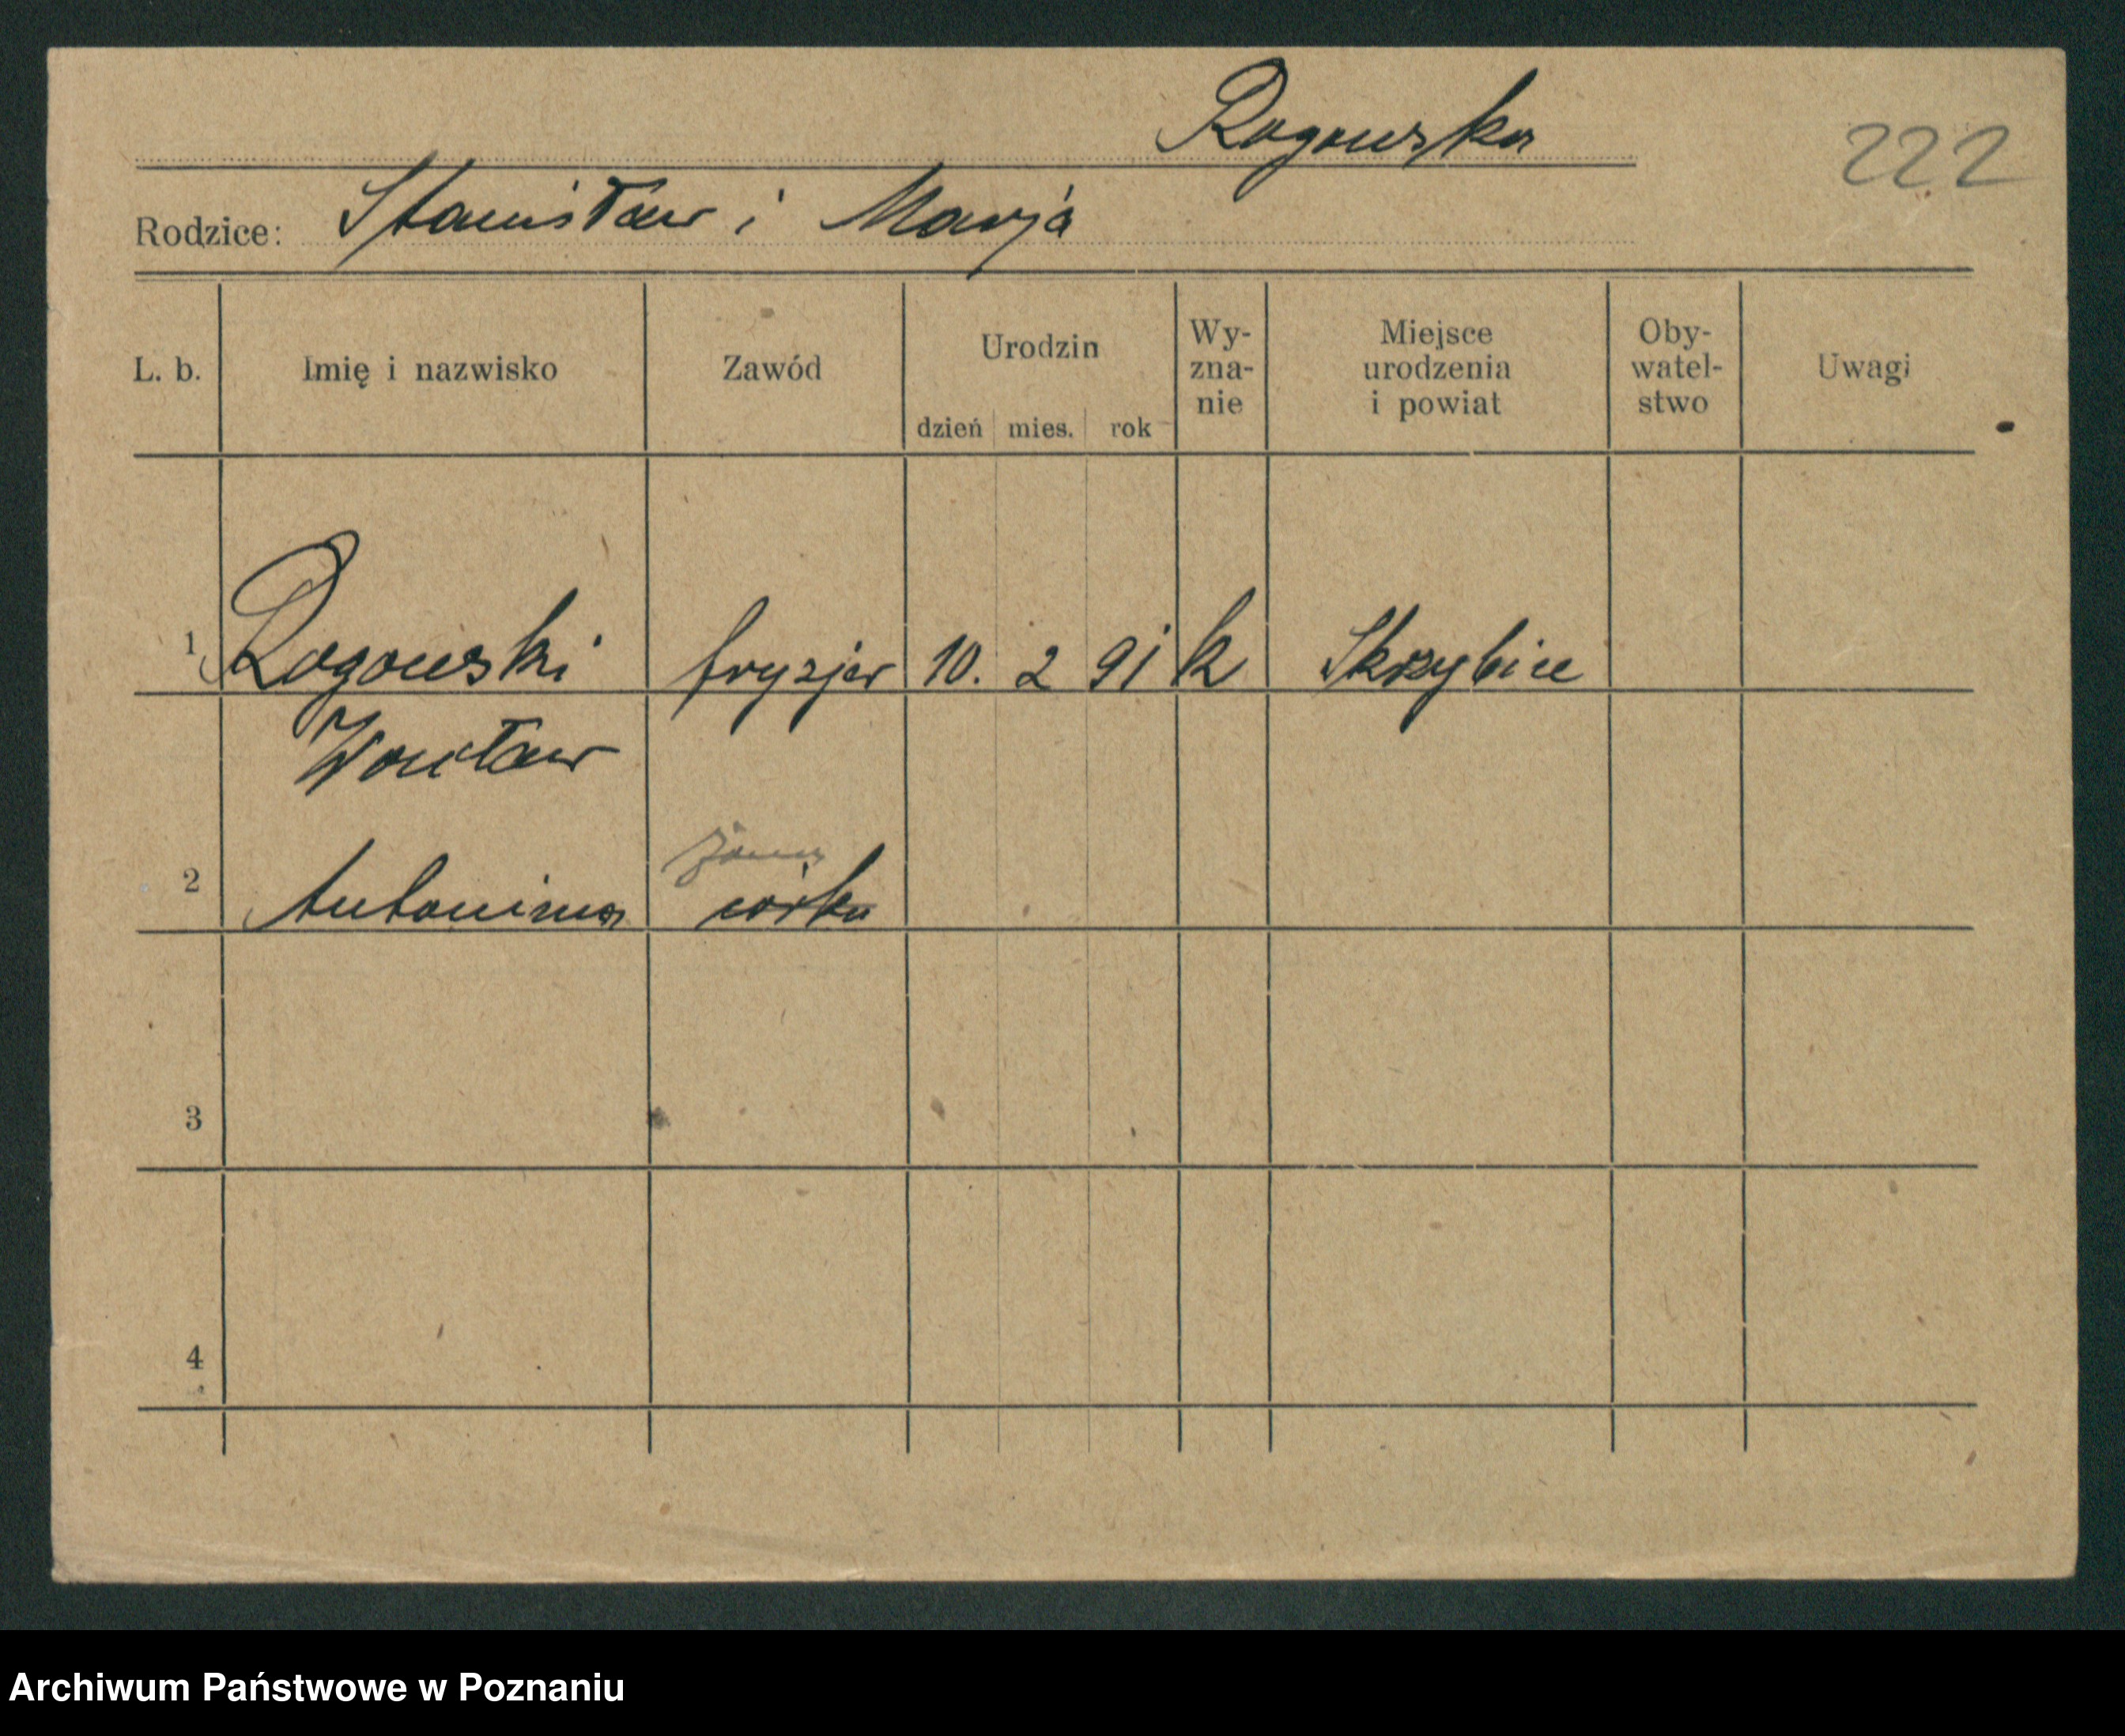 Rogowska
222
Rodzice: Stanisław i Marja
L. b. Imię i nazwisko Zawód Urodzin dzień mies. rok Wy-zna-nie Miejsce urodzenia i powiat Oby-watel-stwo Uwagi
1 Rogowski fryzjer 10. 2 91 k Skrzybice
Wacław
żona
2 Antonina córka
3
4
Archiwum Państwowe w Poznaniu